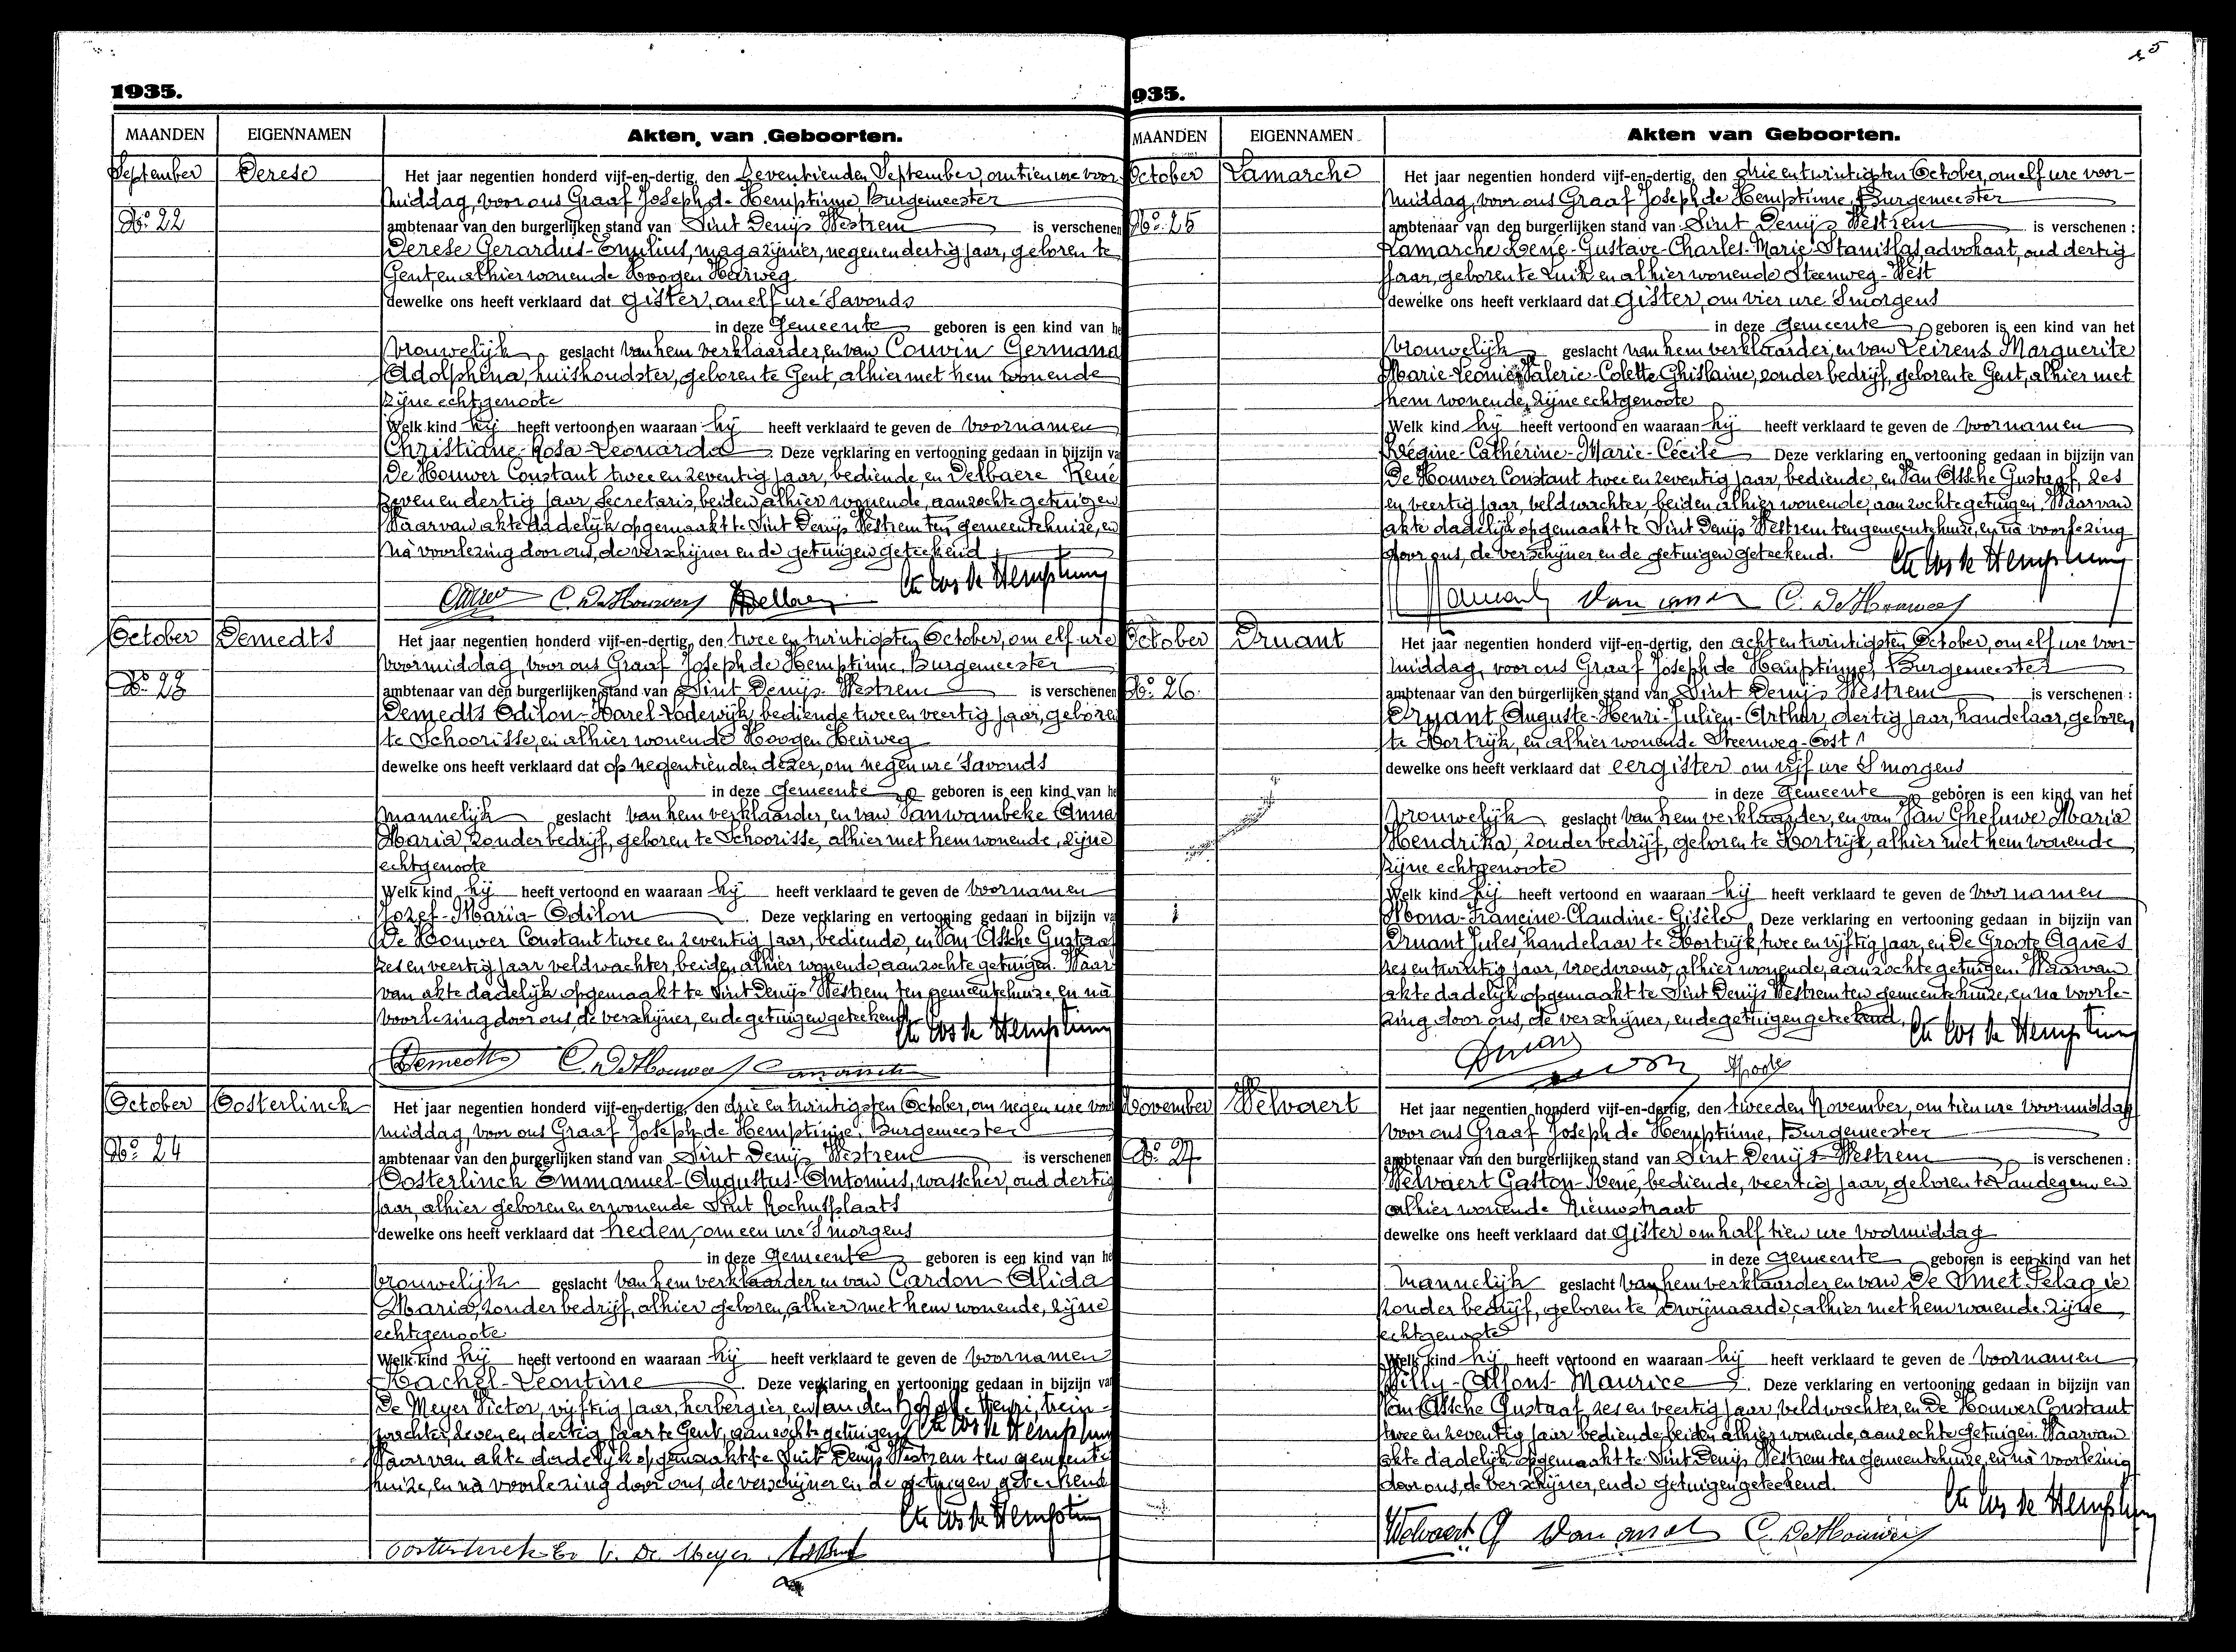 5
1935.
MAANDEN EIGENNAMEN Akten van Geboorten.
September Derese Het jaar negentien honderd vijf-en-dertig, den zeventienden September, om tien ure voor
middag, voor ons Graaf Joseph de Hemptinne Burgemeester
No 22 ambtenaar van den burgerlijken stand van Sint Denijs Westrem is verschenen
Derese Gerardus-Emilius, magazijnier, negen en dertig jaar, geboren te
Gent, en alhier wonende Hoogen Heirweg
dewelke ons heeft verklaard dat gister, om elf ure 's avonds
in deze Gemeente geboren is een kind van he
vrouwelijk geslacht van hem verklaarder, en van Couvin Germana
Adolphina, huishoudster, geboren te Gent, alhier met hem wonende
zijne echtgenoote
Welk kind hij heeft vertoond en waaraan hij heeft verklaard te geven de voornamen
Christiane-Rosa-Leonarda Deze verklaring en vertooning gedaan in bijzijn va
De Houwer Constant twee en zeventig jaar, bediende, en Delbaere René
zeven en dertig jaar secretaris, beiden alhier wonende, aanzochte getuigen
Waarvan akte dadelijk opgemaakt te Sint Denijs Westrem ten gemeentehuize, en
nà voorlezing door ons, de verschijner en de getuigen geteekend
C. De Houwer
October Demedts Het jaar negentien honderd vijf-en-dertig, den twee en twintigsten October, om elf ure
voormiddag, voor ons Graaf Joseph de Hemptinne, Burgemeester
No 23 ambtenaar van den burgerlijken stand van Sint Denijs Westrem is verschenen
Demedts Odilon-Karel-Lodewijk, bediende twee en veertig jaar, geboren
te Schoorisse, en alhier wonende Hoogen Heirweg
dewelke ons heeft verklaard dat op negentienden dezer, om negen ure 's avonds
in deze Gemeente geboren is een kind van he
mannelijk geslacht van hem verklaarder, en van Vanwambeke Anna
Maria, zonder bedrijf, geboren te Schoorisse, alhier met hem wonende, zijne
echtgenoote
Welk kind hij heeft vertoond en waaraan hij heeft verklaard te geven de voornamen
Jozef-Maria-Odilon Deze verklaring en vertooning gedaan in bijzijn va
De Houwer Constant twee en zeventig jaar, bediende, en Van Assche Gustaaf
zes en veertig jaar veldwachter, beiden alhier wonende, aanzochte getuigen. Waar-
van akte dadelijk opgemaakt te Sint Denijs Westrem ten gemeentehuize, en nà
voorlezing door ons, de verschijner, en de getuigen geteekend
Demedts C. De Houwer
October Oosterlinck Het jaar negentien honderd vijf-en-dertig, den drie en twintigsten October, om negen ure voor
middag, voor ons Graaf Joseph de Hemptinne, Burgemeester
No 24 ambtenaar van den burgerlijken stand van Sint Denijs Westrem is verschenen
Oosterlinck Emmanuel-Augustus-Antonius, wasscher, oud dertig
jaar, alhier geboren en er wonende Sint Rochusplaats
dewelke ons heeft verklaard dat heden, om een ure 's morgens
in deze Gemeente geboren is een kind van he
vrouwelijk geslacht van hem verklaarder en van Cardon Alida
Maria, zonder bedrijf, alhier geboren, alhier met hem wonende, zijne
echtgenoote
Welk kind hij heeft vertoond en waaraan hij heeft verklaard te geven de voornamen
Rachel-Leontine Deze verklaring en vertooning gedaan in bijzijn va
De Meyer Victor, vijftig jaar, herbergier en Van den Henri, trein-
wachter, zeven en dertig jaar te Gent, aanzochte getuigen
Waarvan akte dadelijk opgemaakt te Sint Denijs Westrem ten gemeente
huize, en nà voorlezing door ons, de verschijner en de getuigen geteekend
Oosterlinck Em V. De Meyer
935.
MAANDEN EIGENNAMEN Akten van Geboorten.
October Lamarche Het jaar negentien honderd vijf-en-dertig, den drie en twintigsten October, om elf ure voor-
middag, voor ons Graaf Joseph de Hemptinne, Burgemeester
No 25 ambtenaar van den burgerlijken stand van Sint Denijs Westrem is verschenen :
Lamarche René-Gustave-Charles-Marie-Stanislas, advokaat, oud dertig
jaar, geboren te Luik en alhier wonende Steenweg-West
dewelke ons heeft verklaard dat gister, om vier ure 's morgens
in deze Gemeente geboren is een kind van het
vrouwelijk geslacht van hem verklaarder, en van Leirens Marguerite
Marie-Leonie-Valerie-Colette Ghislaine, zonder bedrijf, geboren te Gent, alhier met
hem wonende, zijne echtgenoote
Welk kind hij heeft vertoond en waaraan hij heeft verklaard te geven de voornamen
Régine-Cathérine-Marie-Cécile Deze verklaring en vertooning gedaan in bijzijn van
De Houwer Constant twee en zeventig jaar, bediende, en Van Assche Gustaaf, zes
en veertig jaar, veldwachter, beiden alhier wonende, aanzochte getuigen. Waarvan
akte dadelijk opgemaakt te Sint Denijs Westrem ten gemeentehuize, en nà voorlezing
door ons, de verschijner en de getuigen geteekend.
C. De Houwer
October Druant Het jaar negentien honderd vijf-en-dertig, den acht en twintigsten October, om elf ure voor-
middag, voor ons Graaf Joseph de Hemptinne, Burgemeester
No 26. ambtenaar van den burgerlijken stand van Sint Denijs Westrem is verschenen :
Druant Auguste-Henri-Julien-Arthur, dertig jaar, handelaar, geboren
te Kortrijk, en alhier wonende Steenweg-Oost 1
dewelke ons heeft verklaard dat eergister om vijf ure 's morgens
in deze Gemeente geboren is een kind van het
vrouwelijk geslacht van hem verklaarder, en van Van Gheluwe Maria
Hendrika, zonder bedrijf, geboren te Kortrijk, alhier met hem wonende
zijne echtgenoote
Welk kind hij heeft vertoond en waaraan hij heeft verklaard te geven de voornamen
Mona-Francine-Claudine-Gisèle Deze verklaring en vertooning gedaan in bijzijn van
Druant Jules, handelaar te Kortrijk, twee en vijftig jaar, en De Groote Agnès
zes en twintig jaar, vroedvrouw, alhier wonende, aanzochte getuigen. Waarvan
akte dadelijk opgemaakt te Sint Denijs Westrem ten gemeentehuize, en nà voorle-
zing door ons, de verschijner, en de getuigen geteekend.
November Welvaert Het jaar negentien honderd vijf-en-dertig, den tweeden November, om tien ure voormiddag
voor ons Graaf Joseph de Hemptinne, Burgemeester
No 27 ambtenaar van den burgerlijken stand van Sint Denijs-Westrem is verschenen :
Welvaert Gaston-René, bediende, veertig jaar, geboren te Landegem en
alhier wonende Nieuwstraat
dewelke ons heeft verklaard dat gister om half tien ure voormiddag
in deze Gemeente geboren is een kind van het
mannelijk geslacht van hem verklaarder en van De Smet Pelagie
zonder bedrijf, geboren te Zwijnaarde, alhier met hem wonende zijne
echtgenoote
Welk kind hij heeft vertoond en waaraan hij heeft verklaard te geven de voornamen
Willy-Alfons-Maurice Deze verklaring en vertooning gedaan in bijzijn van
Van Assche Gustaaf, zes en veertig jaar, veldwachter, en De Houwer Constant
twee en zeventig jaar bediende, beiden alhier wonende, aanzochte getuigen. Waarvan
akte dadelijk opgemaakt te Sint Denijs Westrem ten gemeentehuize, en nà voorlezing
door ons, de verschijner, en de getuigen geteekend.
Welvaert G C. De Houwer